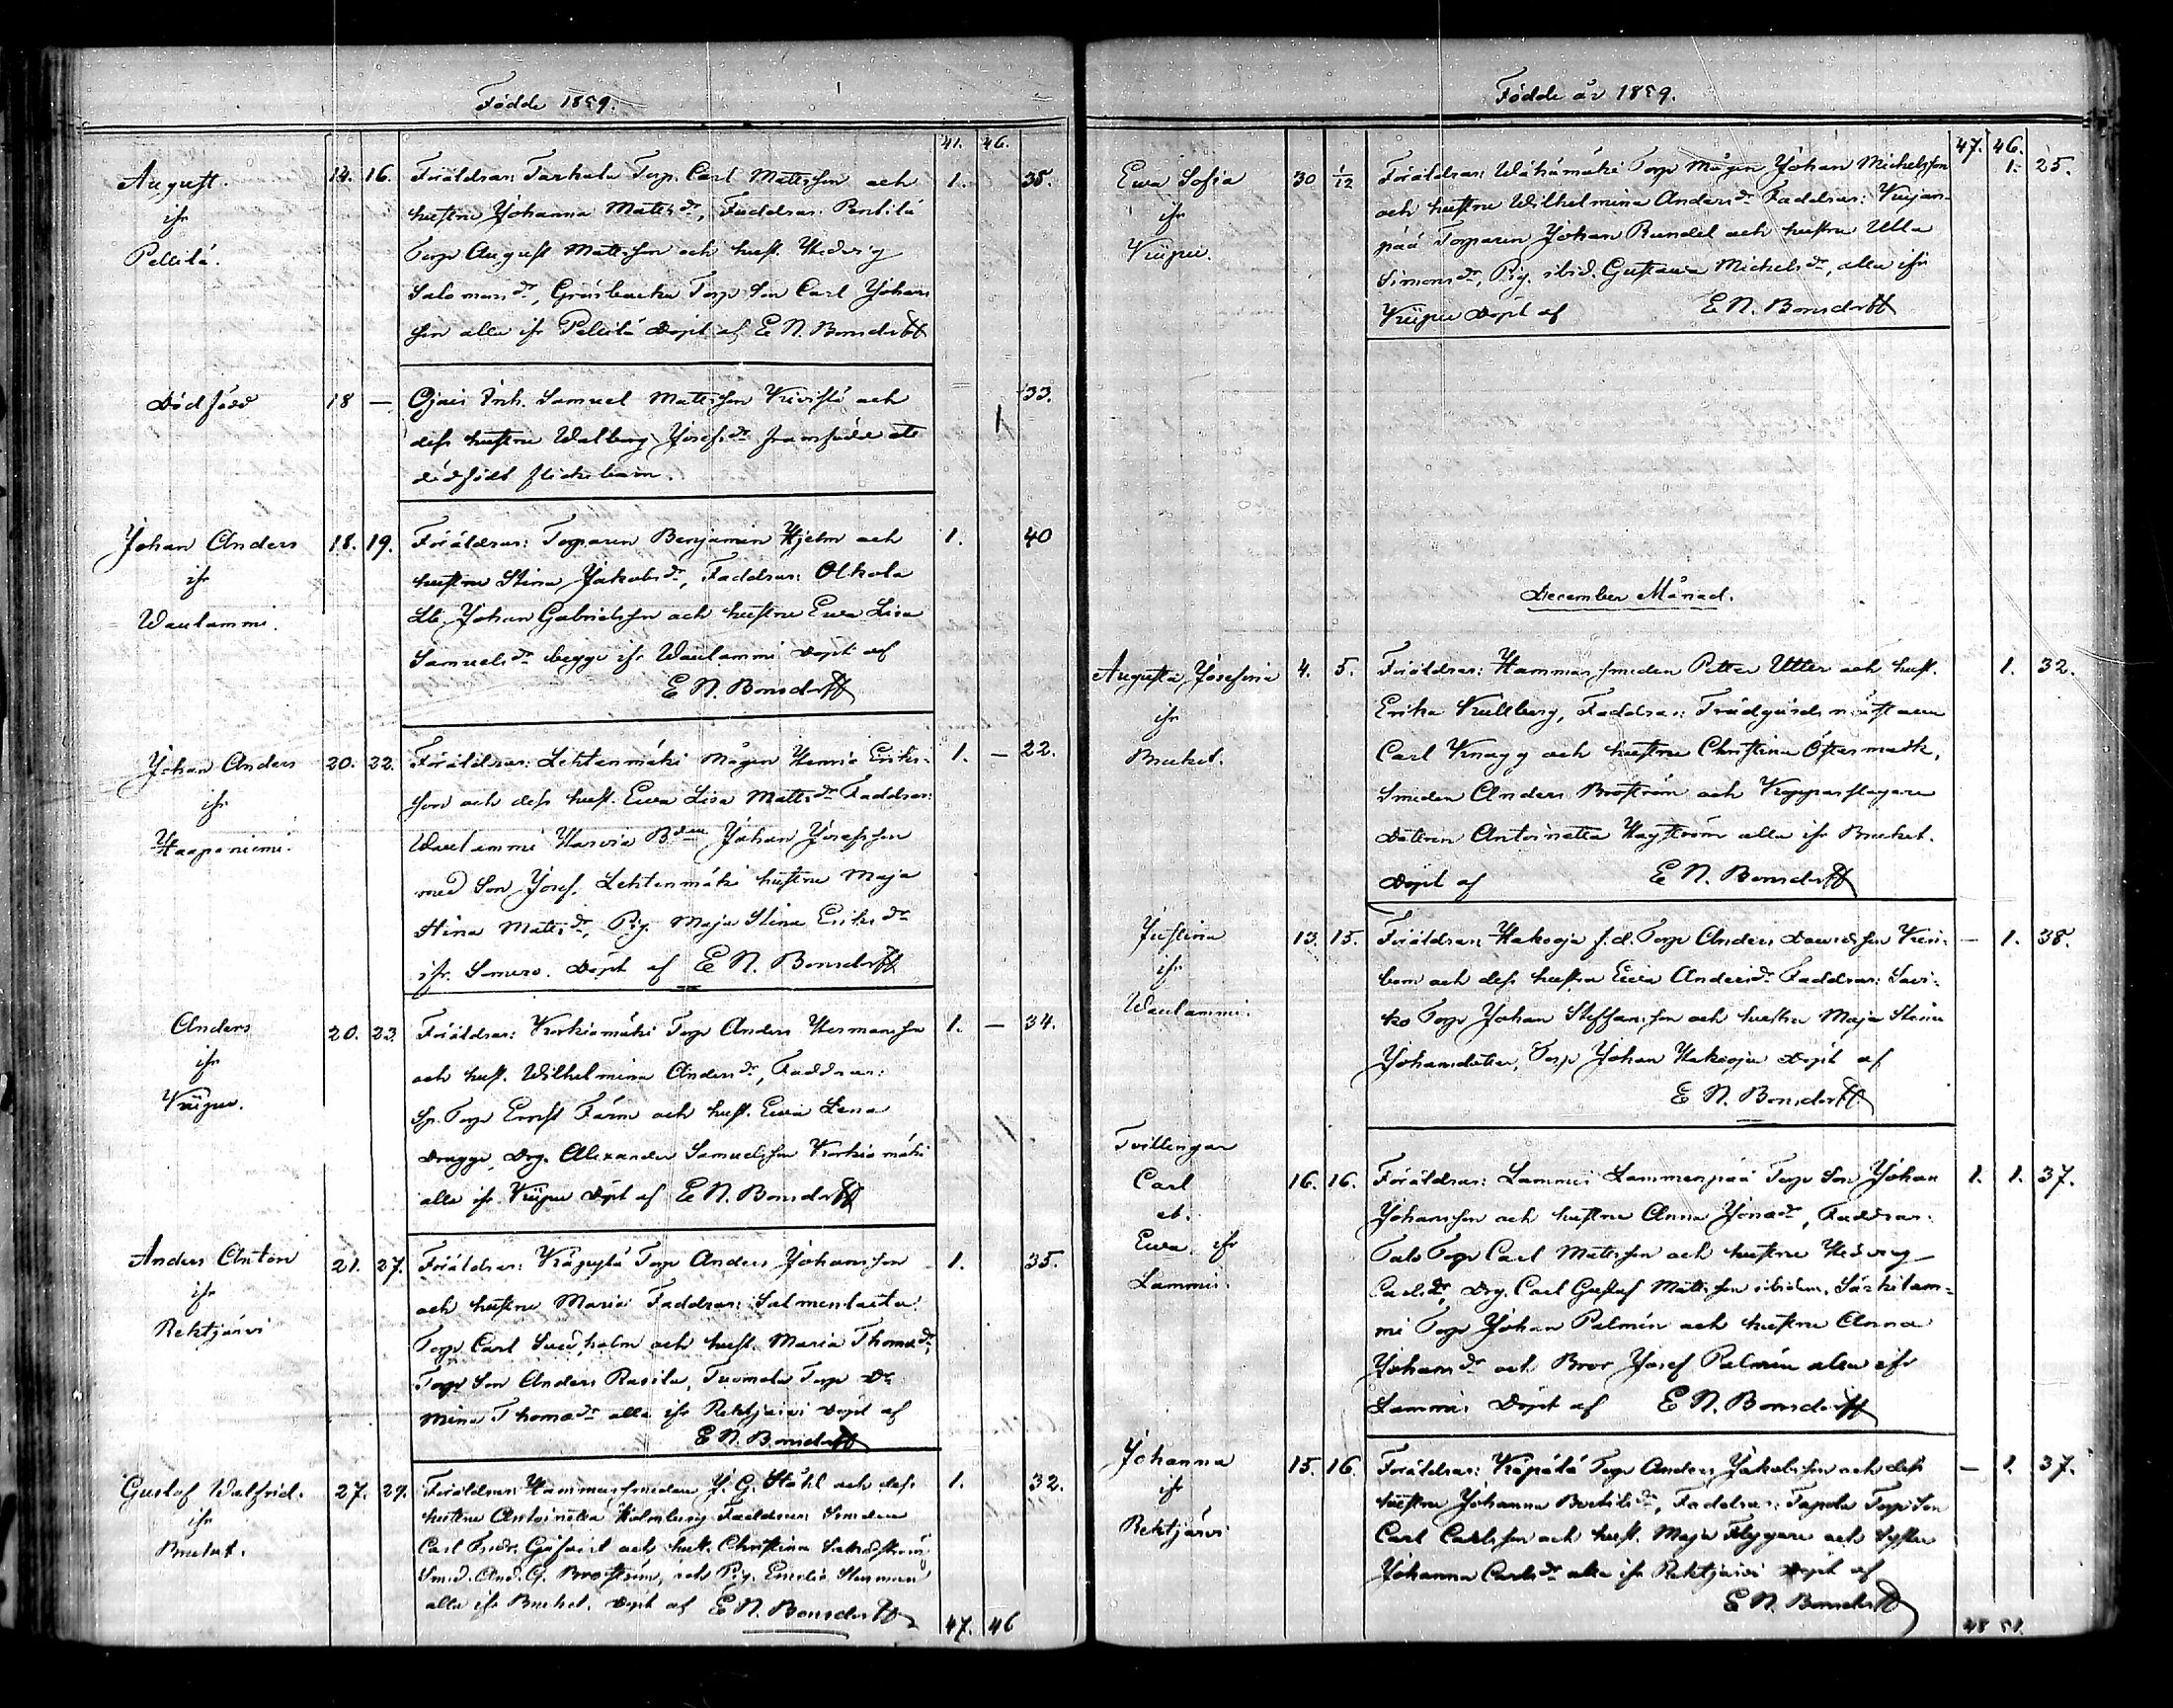 Födde 1859.
41. 46.
August. 14. 16. Föräldrar: Tarkala Torp. Carl Mattsson och 1. 35.
ifr hustru Johanna Mattsdr, Faddrar: Pentilä
Pellilä. Torp August Mattsson och hust. Hedvig
Salomonsdr, Gräsbacka Torp Son Carl Johans
son alla ifr Pellilä Döpt af E N. Bonsdorff
Dödfödd 18 — Ojais Inh. Samuel Mattsson Kivistö och 1 33.
dess hustru Walborg Josefsdr framfödde ett
dödfödt flickebarn.
Johan Anders 18. 19. Föräldrar: Torparen Benjamin Hjelm och 1. 40
ifr hustru Stina Jakobsdr, Faddrar: Olkola
Waulammi. Johan Gabrielsson och hustru Ewa Lisa
Samuelsdr begge ifr Waulammi Döpt af
E N. Bonsdorff
Johan Anders 20. 22. Föräldrar: Lehtenmäki Mågen Henric Eriks- 1. — 22.
ifr son och dess hust. Ewa Lisa Mattsdr Faddrar:
Haaponiemi. Waulammi Harvia Bden Johan Josefsson
med Son Josef, Lehtenmäki hustru Maja
Stina Mattsdr, Pig. Maja Stina Eriksdr
ifr. Somero. Döpt af E N. Bonsdorff
Anders 20. 23. Föräldrar: Korkiamäki Torp Anders Hermansson 1. — 34.
ifr och hust. Wilhelmina Andersdr, Faddrar:
Kriipu. Torp Ernst Färm och hust. Ewa Lena
Dragge, Drg. Alexander Samuelsson Korkiamäki
alla ifr Kriipu Döpt af E N. Bonsdorff
Anders Anton 21. 27. Föräldrar: Torp Anders Johansson 1. 35.
ifr och hustru Maria Faddrar: Salmenlaita
Rehtjärvi Torp Carl Suedholm och hust. Maria Thomasdr,
Torp Son Anders Rasila, Tuomola Torp Dr
Mina Thomasdr alla ifr Rehtjärvi Döpt af
E N. Bonsdorff
Gustaf Walfrid. 27. 29. Föräldrar: Hammarsmeden J. G. Ståhl och dess 1. 32.
ifr hustru Antoinetta Holmberg Faddrar: Smeden
Bruket. Carl Fredr. och hust. Christina
Smed. And. G. Broström, och Pig. Emelie
alla ifr Bruket. Döpt af E N. Bonsdorff
47. 46
Födde år 1859.
47. 46.
Ewa Sofia 30 1/12 Föräldrar: Wähämäki Torp Mågen Johan Michelsson 1. 25.
ifr och hustru Wilhelmina Andersdr Faddrar: Kujan-
Kriipu. pää Torparen Johan Rundel och hustru Ulla
Simonsdr, Pig. ibid. Gustava Michelsdr, alla ifr
Kriipu Döpt af E N. Bonsdorff
December Månad.
Augusta Josefina 4. 5. Föräldrar: Hammarsmeden Petter Utter och hust. 1. 32.
ifr Erika Kullberg, Faddrar: Trädgårdsmästaren
Bruket. Carl Knagg och hustru Christina Östermark,
Smeden Anders Broström och Kopparslagare
Dottren Antoinetta Hagström alla ifr Bruket.
Döpt af E N. Bonsdorff
Justina 13. 15. Föräldrar: Hakooja f.d. Torp Anders Davidsson — 1. 38.
ifr och dess hustru Ewa Andersdr Faddrar: Savi-
Waulammi. ko Torp Johan Steffansson och hustru Maja Stina
Johansdotter, Torp Johan Hakooja Döpt af
E N. Bonsdorff
Tvillingar
Carl 16. 16. Föräldrar: Lammi Lammenpää Torp Son Johan 1. 1. 37.
et. Johansson och hustru Anna Jonasdr, Faddrar:
Ewa ifr Talo Torp Carl Mattsson och hustru Hedvig
Lammi. Carlsdr, Drg. Carl Gustaf Mattsson ibidem, Särkilam-
mi Torp Johan Palmén och hustru Anna
Johansdr och Bror Josef Palmén alla ifr
Lammi Döpt af E N. Bonsdorff
Johanna 15. 16. Föräldrar: Torp Anders Jakobsson och dess — 1. 37.
ifr hustru Johanna Bertilsdr, Faddrar: Tapola Torp Son
Rehtjärvi Carl Carlsson och hust. Maja Flygare och Syster
Johanna Carlsdr alla ifr Rehtjärvi Döpt af
E N. Bonsdorff
48 51.